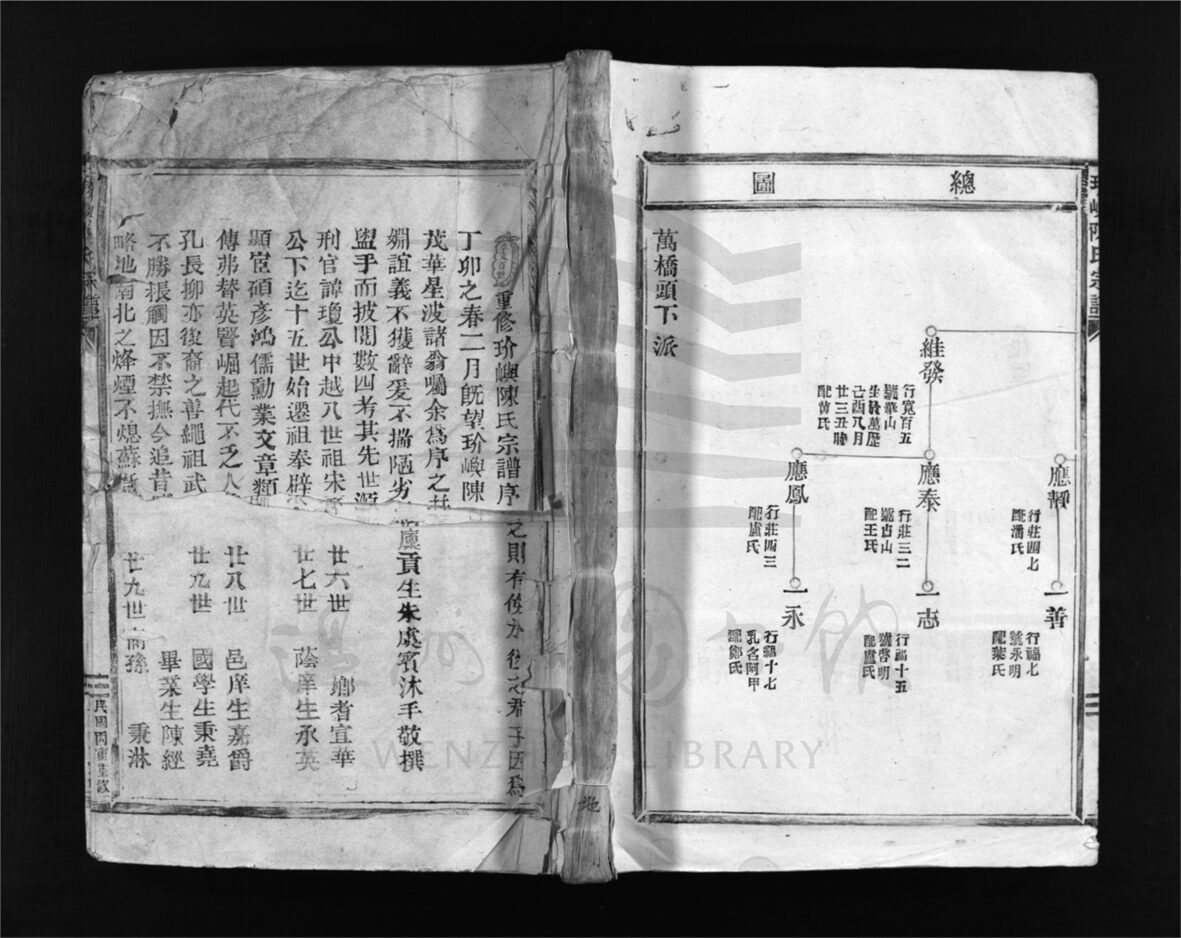 總圖
萬橋頭下派
維發
行寬百五
號華山
生於萬歷
己酉八月
廿三丑時
配黃氏
應靜
行莊四七
配潘氏
一善
行福七
號永明
配葉氏
應泰
行莊三二
號占山
配王氏
一志
行福十五
號啓明
配盧氏
應鳳
行莊四三
配盧氏
一永
行福十七
乳名阿甲
配鄭氏
陳氏宗譜
重修玠嶼陳氏宗譜序
丁卯之春二月既望玠嶼陳
茂華星波諸翁囑余爲序之
姻誼義不獲辭爰不揣陋劣
盥手而披閱數四考其先世源
刑官諱瓊公中越八世祖宋
公下迄十五世始遷祖奉辟
顯宦碩彥鴻儒勳業文章類
傳弗替英賢崛起代不乏人
孔長抑亦後裔之善繩祖武
不勝振觸因不禁撫今追昔
略地南北之烽煙不熄蘇
之則有後
君子因爲
貢生朱處賓沐手敬撰
廿六世 鄉耆宜華
廿七世 蔭庠生承英
廿八世 邑庠生嘉爵
廿九世 國學生秉堯
畢業生陳經
廿九世裔孫 秉淋
民國丙寅重修
地
溫州圖書館
WENZHOU LIBRARY